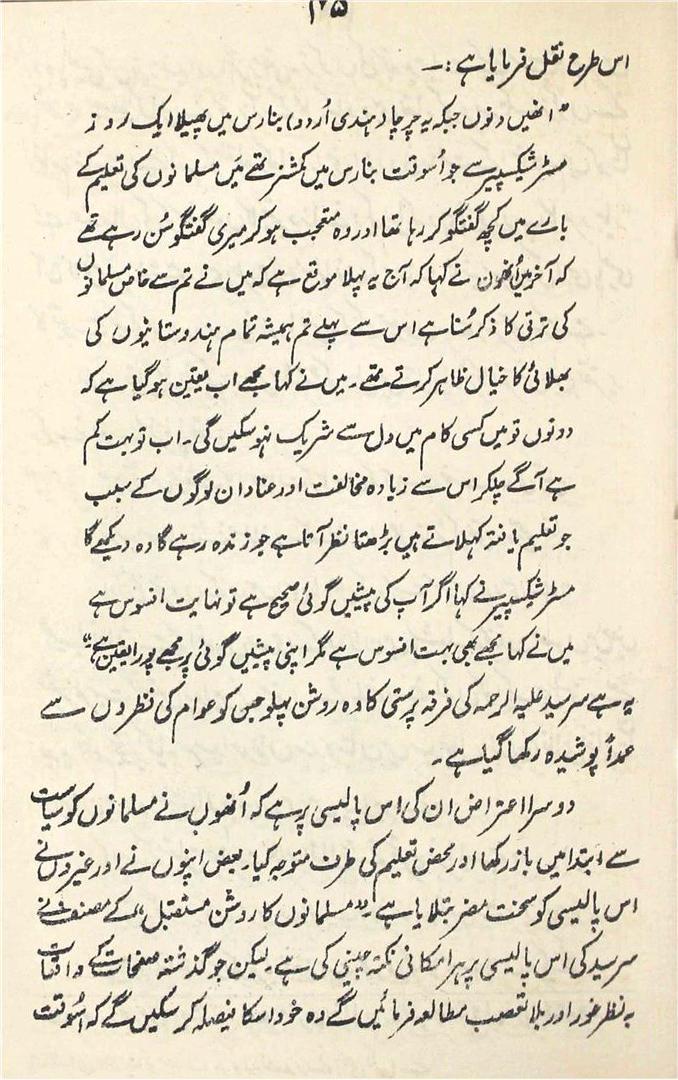 ۲۵
اس طرح نقل فرمایا ہے :۔
" انھیں دنوں جبکہ یہ چرچا (ہندی اُردو) بنارس میں پھیلا ایک روز
مسٹر شیکسپیر سے جو اُسوقت بنارس میں کمشنر تھے مَیں مسلمانوں کی تعلیم کے
بارے میں کچھ گفتگو کر رہا تھا اور وہ متعجب ہو کر میری گفتگو سُن رہے تھے
کہ آخر میں اُنھوں نے کہا کہ آج یہ پہلا موقع ہے کہ میں نے تم سے خاص مسلمانوں
کی ترقی کا ذکر سُنا ہے اس سے پہلے تم ہمیشہ تمام ہندوستانیوں کی
بھلائی کا خیال ظاہر کرتے تھے۔ میں نے کہا مجھے اب یقین ہو گیا ہے کہ
دونوں قومیں کسی کام میں دل سے شریک نہو سکیں گی۔ اب تو بہت کم
ہے آگے چلکر اس سے زیادہ مخالفت اور عناد ان لوگوں کے سبب
جو تعلیم یافتہ کہلاتے ہیں بڑھتا نظر آتا ہے جو زندہ رہے گا وہ دیکھے گا
مسٹر شیکسپیر نے کہا اگر آپ کی پیشیں گوئی صحیح ہے تو نہایت افسوس ہے
میں نے کہا مجھے بھی بہت افسوس ہے مگر اپنی پیشیں گوئی پر مجھے پورا یقین ہے"
یہ ہے سرسید علیہ الرحمہ کی فرقہ پرستی کا وہ روشن پہلو جس کو عوام کی نظروں سے
عمداً پوشیدہ رکھا گیا ہے۔
دوسرا اعتراض ان کی اس پالیسی پر ہے کہ اُنھوں نے مسلمانوں کو سیاست
سے ابتدا میں باز رکھا اور محض تعلیم کی طرف متوجہ کیا۔ بعض اپنوں نے اور غیروں نے
اس پالیسی کو سخت مضر بتلایا ہے۔ "مسلمانوں کا روشن مستقبل" کے مصنف نے
سرسید کی اس پالیسی پر ہر امکانی نکتہ چینی کی ہے۔ لیکن جو گذشتہ صفحات کے واقعات
بہ نظر غور اور بلا تعصب مطالعہ فرمائیں گے وہ خود اسکا فیصلہ کر سکیں گے کہ اُسوقت